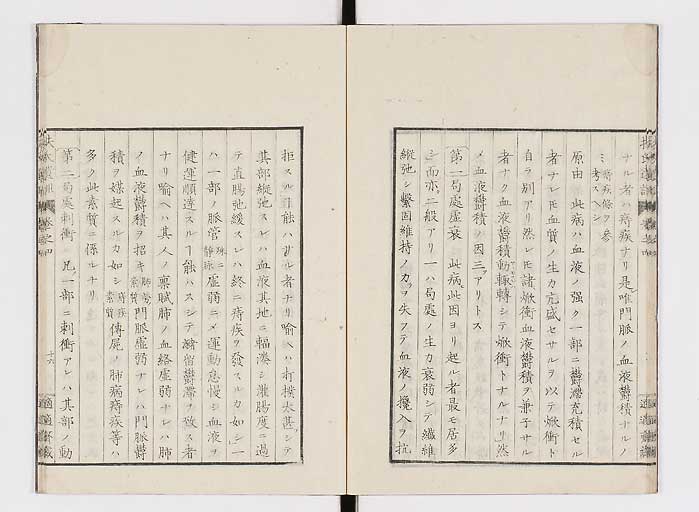 ナル者ハ痔疾ナリ是唯門脈ノ血液欝積ナルノ
ミ痔疾條ヲ参考スヘシ
原由 此病ハ血液ノ强ク一部ニ欝滯充積セル
者ナレ𪜈血質ノ生力亢盛セサルヲ以テ焮衝ト
自ラ別アリ然レ𪜈諸焮衝血液欝積ヲ兼子サル
者ナク血液欝積動輙轉シテ焮衝トナルナリ然
メ血液欝積ノ因三アリトス
第一局處虚衰 此病此因ヨリ起ル者最モ居多
而亦二般アリ一ハ局處ノ生力衰弱シテ纖維
縱弛シ繫固維持ノ力ヲ失フテ血液ノ攙入ヲ抗
扶氏遺訓 巻之四
適適齋藏
拒スルヿ能ハサル者ナリ喩ヘハ打撲太甚シテ
其部縱弛スレハ血液其地ニ輻湊シ灌腸度ニ過
テ直腸弛緩スレハ終ニ痔疾ヲ發スルカ如シ一
ハ一部ノ脈管殊ニ靜脈虚弱ニメ運動怠慢シ血液ヲ
健運順達スルヿ能ハスシテ瀦留欝滯ヲ致ス者
ナリ喩ヘハ其人ノ禀賦肺ノ血絡虚弱ナレハ肺
ノ血液欝積ヲ招キ肺勞素質門脈虚弱ナレハ門脈欝
積ヲ媒起スルカ如シ痔疾素質傳屍ノ肺病痔疾等ハ
多ク此素質ニ係ルナリ
第二局處刺衝 凡一部ニ刺衝アレハ其部ノ動
扶氏遺訓 巻之四
十六
適適齋藏